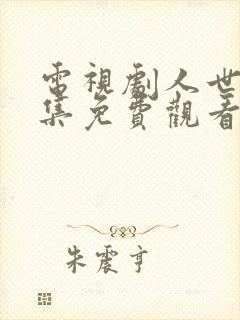 電視劇人世
集免費觀看
朱震亨